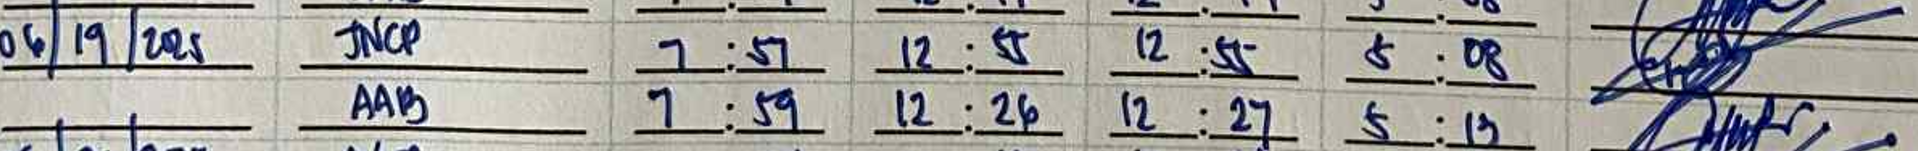 06/19/2025 JNCP 7:57 12:55 12:55 5:08
AAB 7:59 12:26 12:27 5:13